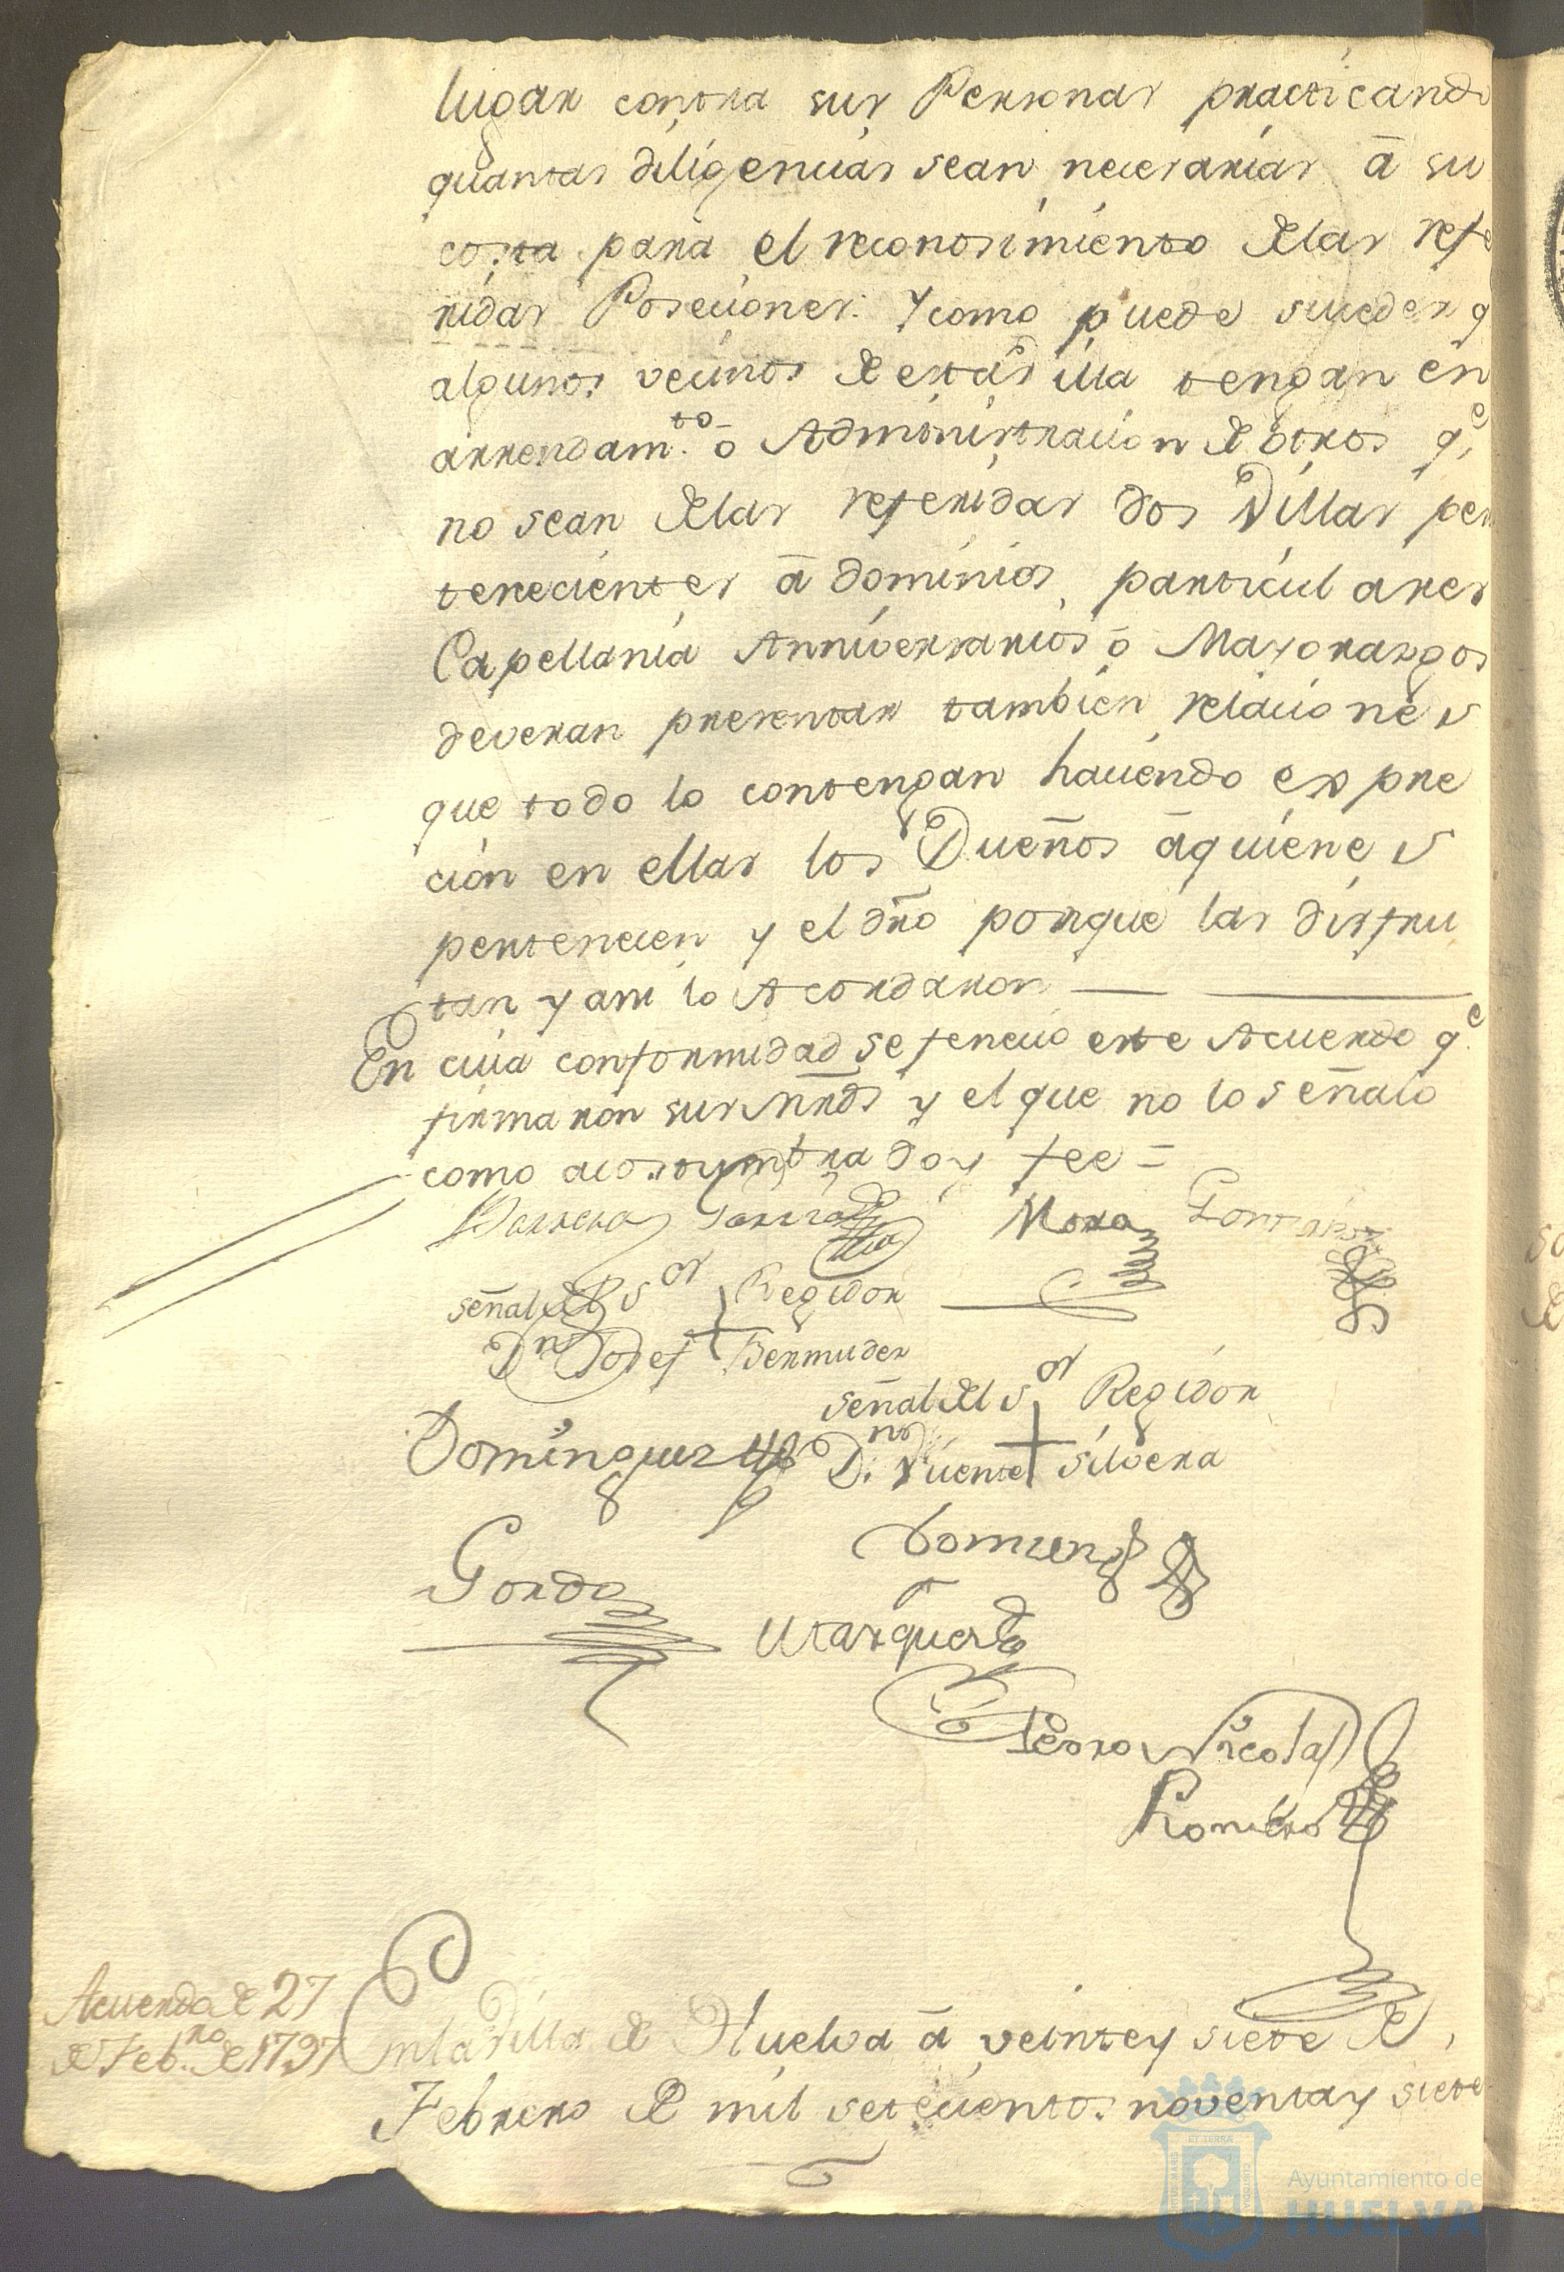 lugar contra sus Personas practicando
quantas diligencias sean necesarias â su
costa para el reconosimiento delas refe
ridas Poseciones: Y como puede suceder q
algunos vecinos de esta Villa tengan en
arrendam.to ô Administracion de otros q.e
no sean delas referidas dos Villas per
tenecientes â dominios particulares
Capellania Anniversarios ô Mayorazgos
deveran presentar tambien relaciones
que todo lo contengan haciendo expre
cion en ellas los Dueños âquienes
pertenecen y el dro porque las disfru
tan y asi lo Acordaron
En cuia conformidad se fenecio este Acuerdo q.e
firmaron sus mrds y el que no lo señalo
como acostumbra doy fee =
Barrera Garcia Mora Gonzales
señal del s.or Regidor
D.n Josef Bermudez
señal del s.or Regidor
Dominguez D.n Vicente Silvera
Gordo
Marquez
Pedro Nicolas
Romero
Acuerdo de 27
de Feb.ro de 1797
En la Villa de Huelva â veinte y siete de
Febrero de mil setecientos noventa y siete
ET TERRÆ
Ayuntamiento de
HUELVA